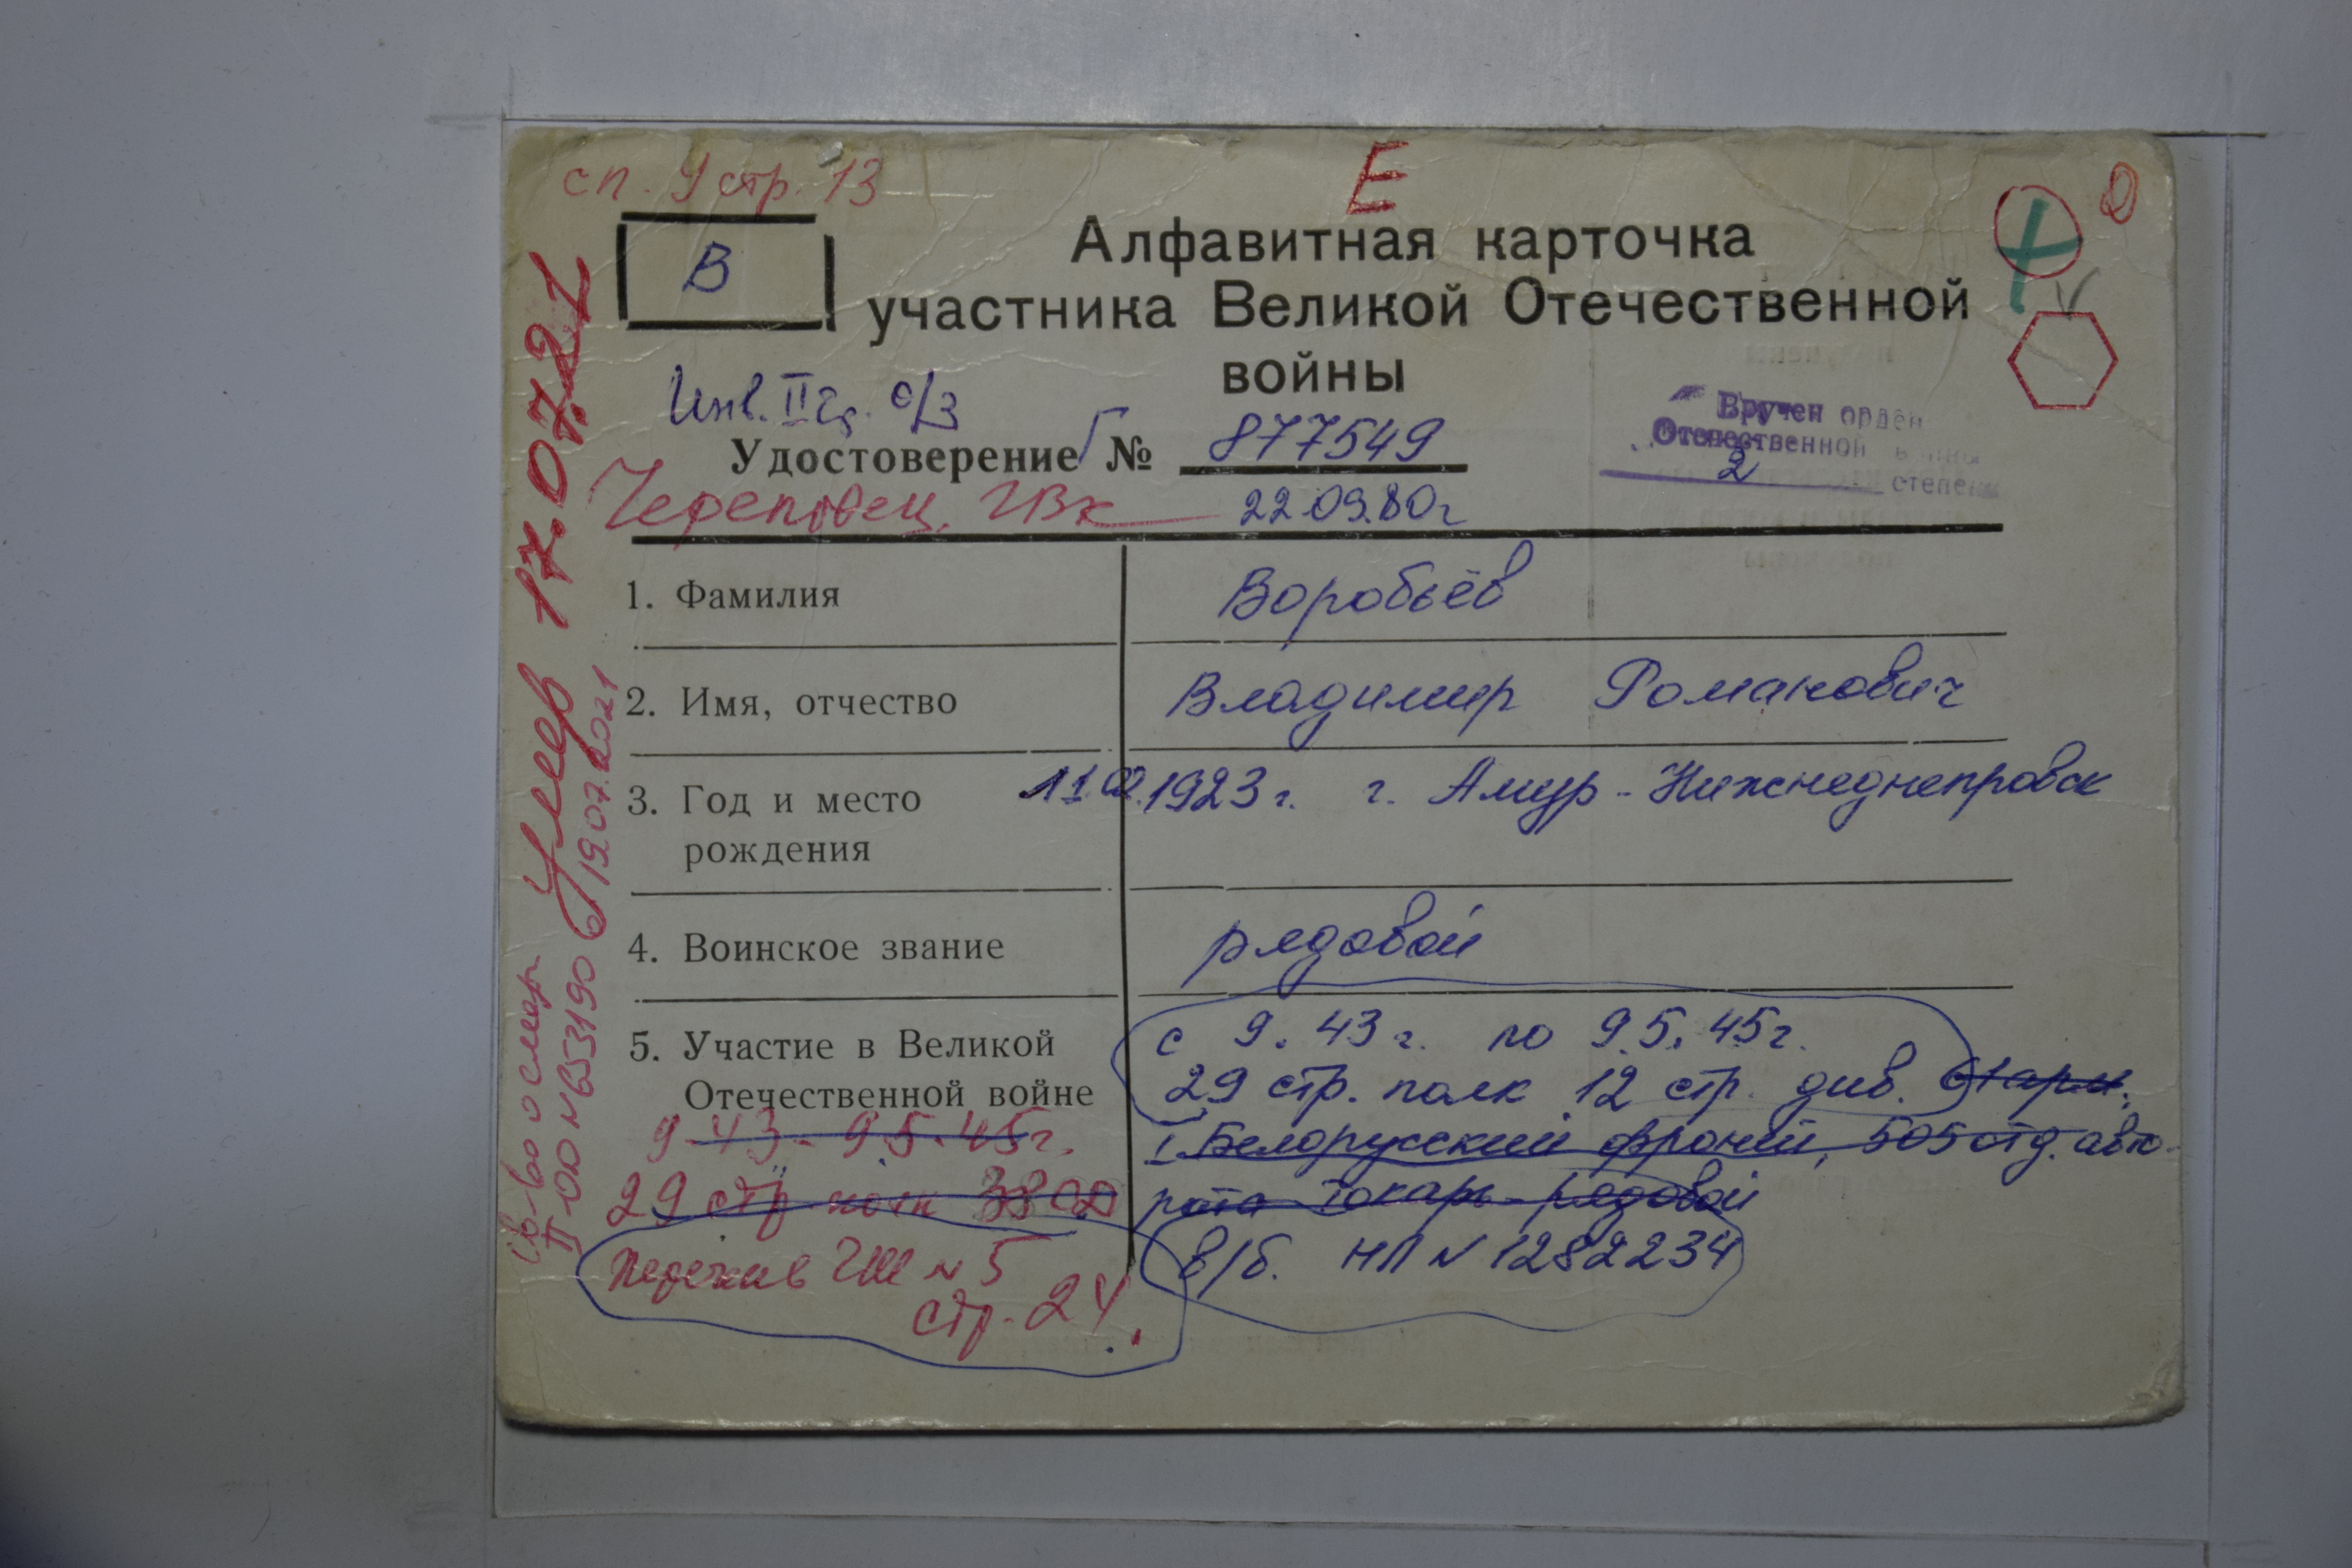 сп. 9 стр. 13
Е
В
Алфавитная карточка
участника Великой Отечественной
войны
Инв. II гр. о/з
Вручен орден
Отечественной войны
2 степени
Удостоверение Г № 877549
Череповец. ГВК 22.09.80г
1. Фамилия Воробьёв
2. Имя, отчество Владимир Романович
3. Год и место 11.02.1923 г. г. Амур-Нижнеднепровск
рождения
4. Воинское звание рядовой
5. Участие в Великой с 9. 43 г. по 9.5.45г.
Отечественной войне 29 стр. полк 12 стр. див.
9-43-9.5.45г. I Белорусский фронт, 505 отд. авто-
29 стр полк рота токарь-рядовой
ГШ № 5 в/б. НП № 1282234
стр. 24.
Умер 17.07.21
св-во о смер
II-ОД № 653190 19.07.2021